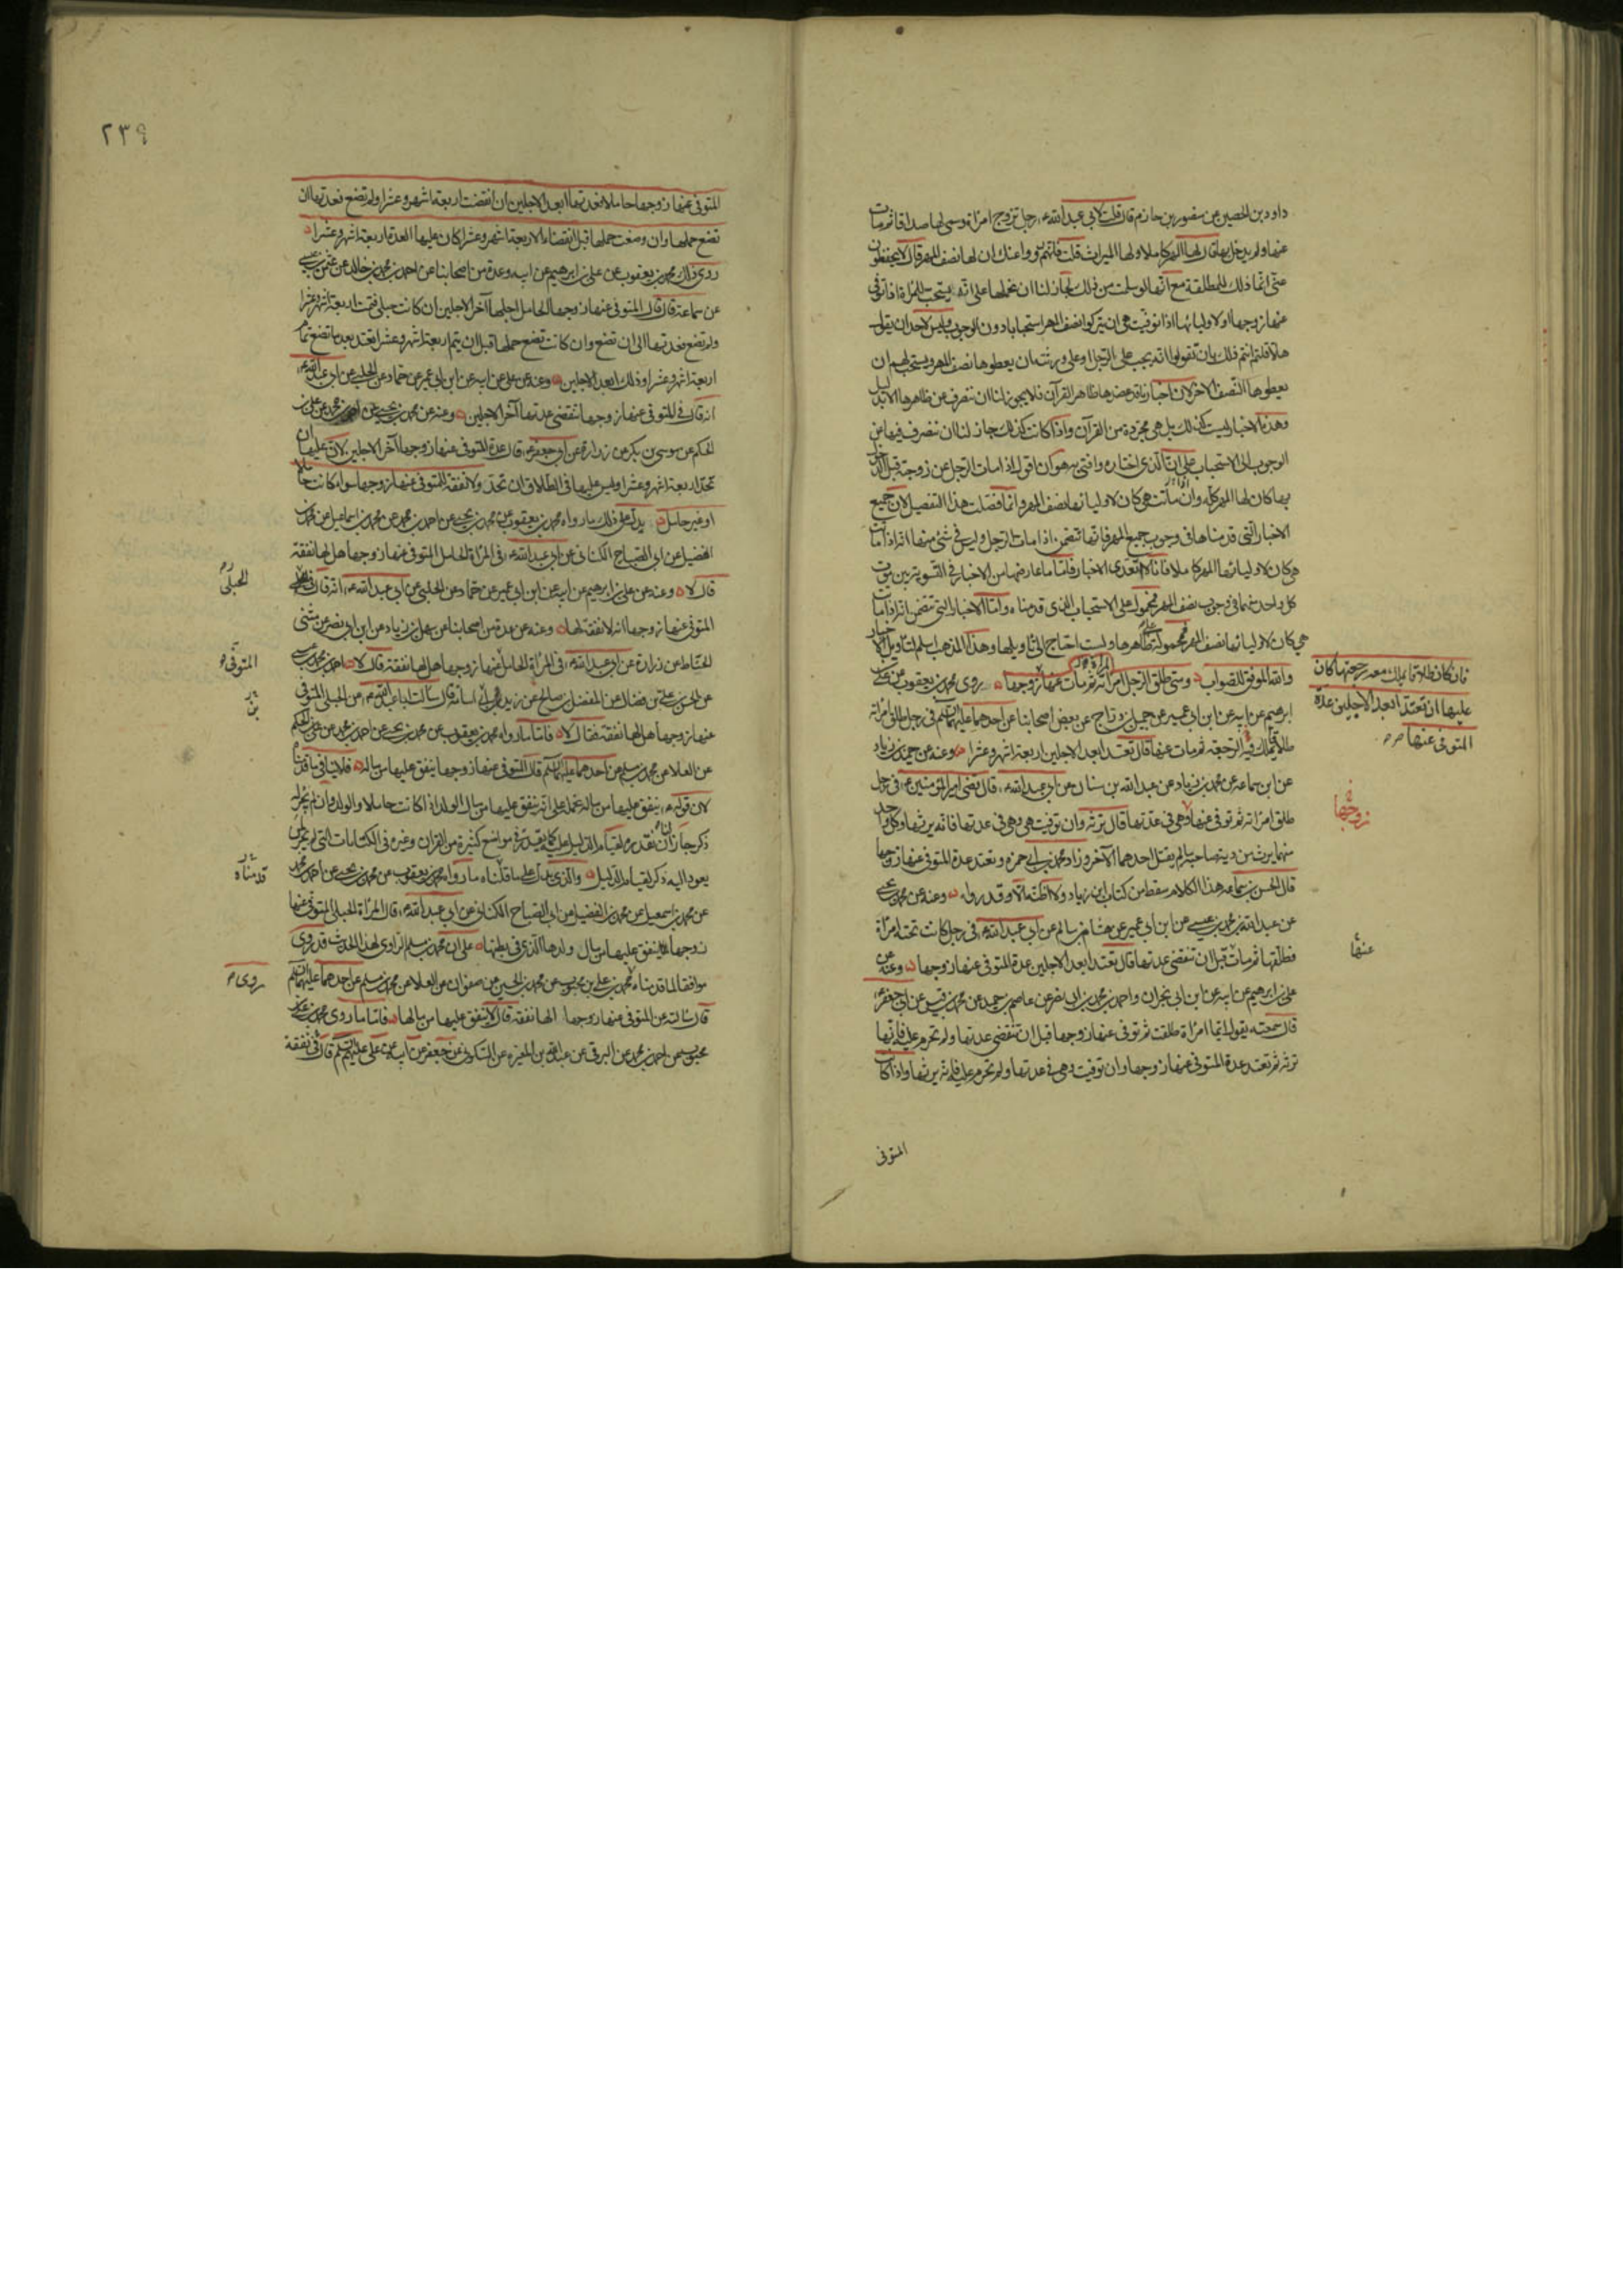 داود بن الحصين عن منصور بن حازم قال قلت لابي عبد الله ع رجل تزوج امراة وسمى لها صداقا ثم مات
عنها ولم يدخل بها قال لها المهر كاملا ولها الميراث قلت فانهم رووا عنك ان لها نصف المهر قال لا يحفظون
عنى انما ذلك للمطلقة مع انها لو سلمت من ذلك لجاز لنا ان نحملها على انه يستحب للمراة اذا توفى
عنها زوجها او لاوليائها اذا توفيت هى ان يتركوا نصف المهر استحبابا دون الوجوب وليس لاحد ان يقول
هلا قلتم انتم ذلك بان تقولوا انه يجب على الرجل او على ورثته ان يعطوها نصف المهر ويستحب لهم ان
يعطوها النصف الاخر لان اخبارنا قد عضدها ظاهر القرآن فلا يجوز لنا ان ننصرف عن ظاهرها الا بدليل
وهذه الاخبار ليست كذلك بل هى مجردة من القرآن واذا كانت كذلك جاز لنا ان نصرف فيها من
الوجوب الى الاستحباب على ان الذى اختاره وافتى به هو ان اقول اذا مات الرجل عن زوجته قبل الدخول
بها كان لها المهر كله وان ماتت هى كان لاوليائها نصف المهر وانما فصلت هذا التفصيل لان جميع
الاخبار التى قدمناها فى وجوب جميع المهر فانها تتضمن اذا مات الرجل وليس فى شئ منها انه اذا ماتت
هى كان لاوليائها المهر كاملا فانا لا اتعدى الاخبار فاما ما عارضها من الاخبار فى التسوية بين موت
كل واحد منهما فى وجوب نصف المهر فمحمول على الاستحباب الذى قدمناه واما الاخبار التى تتضمن انه اذا ماتت
هى كان لاوليائها نصف المهر فمحمولة على ظاهرها ولست احتاج الى تاويلها وهذا المذهب اسلم لتاويل الاخبار
والله الموفق للصواب ومتى طلق الرجل امراته ثم مات عنها زوجها روى محمد بن يعقوب عن على بن
ابرهيم عن ابيه عن ابن ابى عمير عن جميل بن دراج عن بعض اصحابنا عن احدهما عليهما السلم فى رجل طلق امراته
طلاقا يملك فيه الرجعة ثم مات عنها قال تعتد ابعد الاجلين اربعة اشهر وعشرا وعنه عن حميد بن زياد
عن ابن سماعه عن محمد بن زياد عن عبد الله بن سنان عن ابى عبد الله ع قال قضى امير المؤمنين ع فى رجل
طلق امراته ثم توفى عنها وهى فى عدتها قال ترثه وان توفيت هى وهى فى عدتها فانه يرثها وكل واحد
منهما يرث من دية صاحبه ما لم يقتل احدهما الآخر وزاد محمد بن ابى حمزه وتعتد عدة المتوفى عنها زوجها
قال الحسن بن سماعه هذا الكلام سقط من كتاب ابن زياد ولا اظنه الا وقد رواه وعنه عن محمد بن يحيى
عن عبد الله بن محمد بن عيسى عن ابن ابى عمير عن هشام بن سالم عن ابى عبد الله ع فى رجل كانت تحته امراة
فطلقها ثم مات قبل ان تنقضى عدتها قال تعتد ابعد الاجلين عدة المتوفى عنها زوجها وعنه عن
على بن ابرهيم عن ابيه عن ابن ابى نجران واحمد بن محمد بن ابى نصر عن عاصم بن حميد عن محمد بن قيس عن ابى جعفر ع
قال سمعته يقول ايما امراة طلقت ثم توفى عنها زوجها قبل ان تنقضى عدتها ولم تحرم عليه فانها
ترثه ثم تعتد عدة المتوفى عنها زوجها وان توفيت وهى فى عدتها ولم تحرم عليه فانه يرثها واذا كانت
المتوفى
فان كان طلاقا يملك معه رجعتها كان
عليها ان تعتد ابعد الاجلين عدة
المتوفى عنها
زوجها
عنها
٢٣٩
المتوفى عنها زوجها حاملا فعدتها ابعد الاجلين ان انقضت اربعة اشهر وعشرا ولم تضع فعدتها ان
تضع حملها وان وضعت حملها قبل انقضاء الاربعة اشهر وعشرا كان عليها العدة اربعة اشهر وعشرا
روى ذلك محمد بن يعقوب عن على بن ابرهيم عن ابيه وعدة من اصحابنا عن احمد بن محمد بن خالد عن عثمن بن عيسى
عن سماعة قال قال المتوفى عنها زوجها الحامل اجلها آخر الاجلين ان كانت حبلى فتمت اربعة اشهر وعشرا
ولم تضع فعدتها الى ان تضع وان كانت تضع حملها قبل ان يتم اربعة اشهر وعشرا تعتد بعد ما تضع تمام
اربعة اشهر وعشرا وذلك ابعد الاجلين وعنه عن على عن ابيه عن ابن ابى عمير عن حماد عن الحلبى عن ابى عبد الله ع
انه قال فى المتوفى عنها زوجها تنقضى عدتها آخر الاجلين وعنه عن محمد بن يحيى عن احمد بن محمد عن على بن
الحكم عن موسى بن بكر عن زرارة عن ابى جعفر ع قال عدة المتوفى عنها زوجها آخر الاجلين لان عليها ان
تحد اربعة اشهر وعشرا وليس عليها فى الطلاق ان تحد ولا نفقة للمتوفى عنها زوجها سواء كانت حاملا
او غير حامل يدل على ذلك ما رواه محمد بن يعقوب عن محمد بن يحيى عن احمد بن محمد عن محمد بن اسماعيل عن محمد بن
الفضيل عن ابى الصباح الكنانى عن ابى عبد الله ع فى المراة الحامل المتوفى عنها زوجها هل لها نفقة
قال لا وعنه عن على بن ابرهيم عن ابيه عن ابن ابى عمير عن حماد عن الحلبى عن ابى عبد الله ع انه قال فى
المتوفى عنها زوجها انه لا نفقة لها وعنه عن عدة من اصحابنا عن سهل بن زياد عن ابن ابى نصر عن مثنى
الحناط عن زرارة عن ابى عبد الله ع فى المراة الحامل عنها زوجها هل لها نفقة قال لا احمد بن محمد بن عيسى
عن الحسن على بن فضال عن المفضل بن صالح عن زيد ابى اسامة قال سالت ابا عبد الله ع عن الحبلى المتوفى
عنها زوجها هل لها نفقة فقال لا فاما ما رواه محمد بن يعقوب عن محمد بن يحيى عن احمد بن محمد عن على بن الحكم
عن العلا عن محمد بن مسلم عن احدهما عليهما السلم قال المتوفى عنها زوجها ينفق عليها من ماله فلا ينافى ما قدمناه
لان قوله ع ينفق عليها من ماله نحمله على انه ينفق عليها من مال الولد اذا كانت حاملا والولد وان لم يجر له
ذكر جاز ان نقدره لقيام الدليل عليه كما يقدر فى مواضع كثيرة من القران وغيره فى الكنايات التى لم يجر لمن
يعود اليه ذكر لقيام الدليل والذى يدل على ما قلناه ما رواه محمد بن يعقوب عن محمد بن يحيى عن احمد بن محمد
عن محمد بن اسمعيل عن محمد بن الفضيل عن ابى الصباح الكنانى عن ابى عبد الله ع قال المراة الحبلى المتوفى عنها
زوجها ينفق عليها من مال ولدها الذى فى بطنها على ان محمد بن مسلم الراوى لهذا الحديث قد روى
موافقا لما قدمناه محمد بن على بن محبوب عن محمد بن الحسين عن صفوان عن العلا عن محمد بن مسلم عن احدهما عليهما السلم
قال سالته عن المتوفى عنها زوجها الها نفقة قال لا ينفق عليها من مالها فاما ما روى محمد بن على بن
محبوب عن احمد بن محمد عن البرقى عن عبد الله بن المغيره عن السكونى عن جعفر عن ابيه عن على عليهم السلم قال فى نفقة
الحبلى
المتوفى
بن
قدمناه
روى